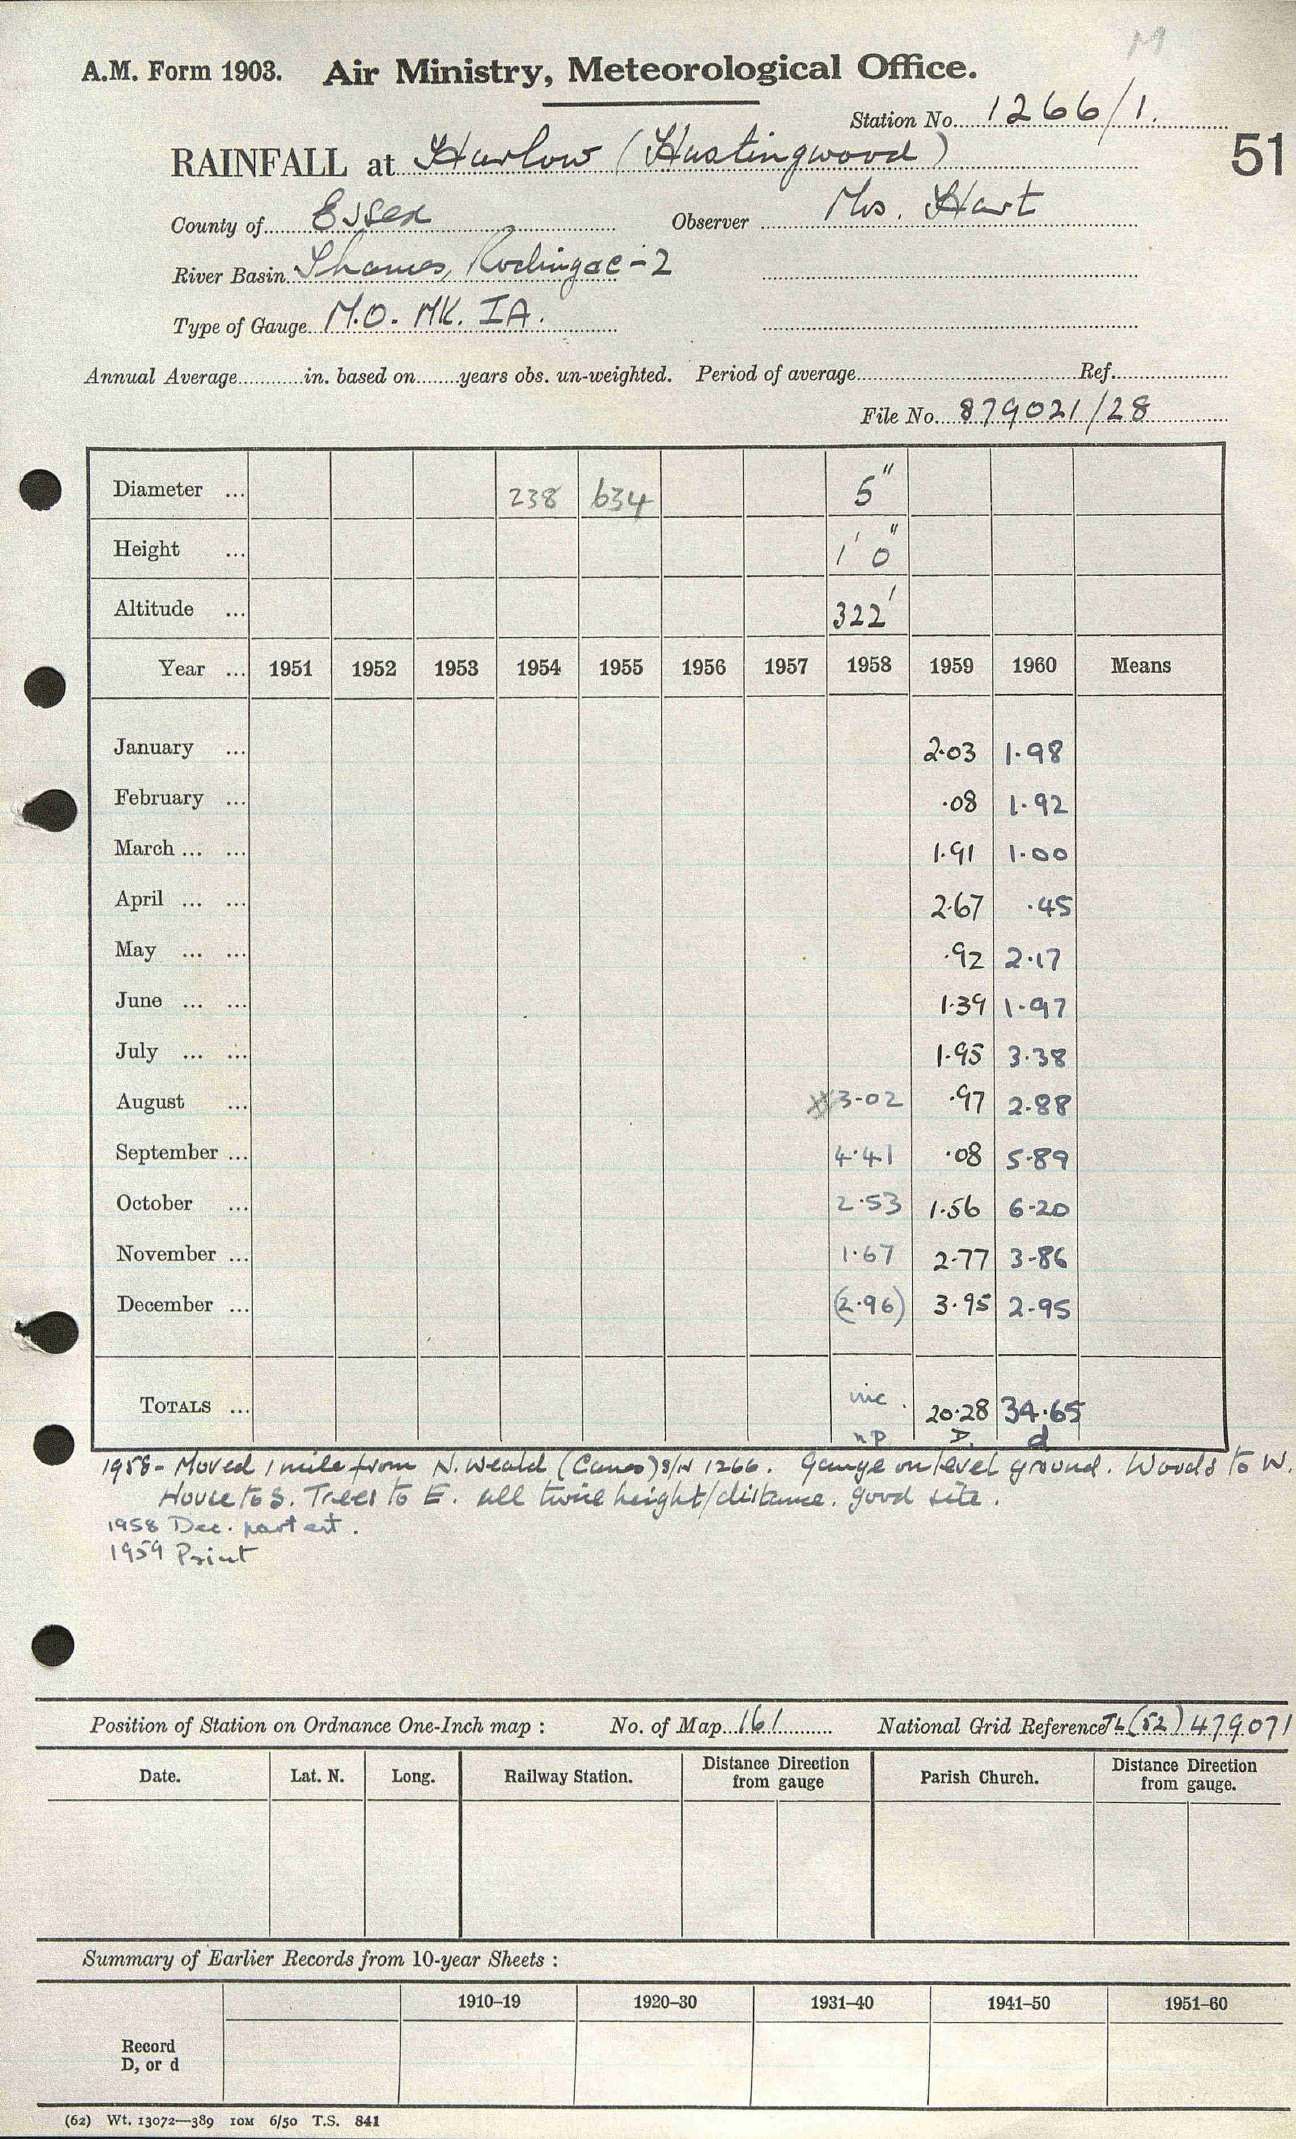 M
A.M. Form 1903. Air Ministry, Meteorological Office.
Station No. 1266/1.
RAINFALL at Harlow (Hastingwood)
51
County of Essex Observer Mrs. Hart
River Basin Thames, Roding ac-2
Type of Gauge M.O. MK. IA.
Annual Average in. based on years obs. un-weighted. Period of average Ref.
File No. 879021/28
Diameter ... 238 634 5"
Height ... 1' 0"
Altitude ... 322'
Year ... 1951 1952 1953 1954 1955 1956 1957 1958 1959 1960 Means
January ... 2.03 1.98
February ... .08 1.92
March ... ... 1.91 1.00
April ... ... 2.67 .45
May ... ... .92 2.17
June ... ... 1.39 1.97
July ... ... 1.95 3.38
August ... 3.02 .97 2.88
September ... 4.41 .08 5.89
October ... 2.53 1.56 6.20
November ... 1.67 2.77 3.86
December ... (2.96) 3.95 2.95
TOTALS ... inc. 20.28 34.65
np D. d
1958 - Moved 1 mile from N. Weald (Canes) S/N 1266. Gauge on level ground. Woods to W.
House to S. Trees to E. all twice height/distance. good site.
1958 Dec. part est.
1959 Print
Position of Station on Ordnance One-Inch map : No. of Map 161 National Grid Reference TL (52) 479071
Date. Lat. N. Long. Railway Station. Distance Direction from gauge Parish Church. Distance Direction from gauge.
Summary of Earlier Records from 10-year Sheets :
1910–19 1920–30 1931–40 1941–50 1951–60
Record
D, or d
(62) Wt. 13072—389 10M 6/50 T.S. 841